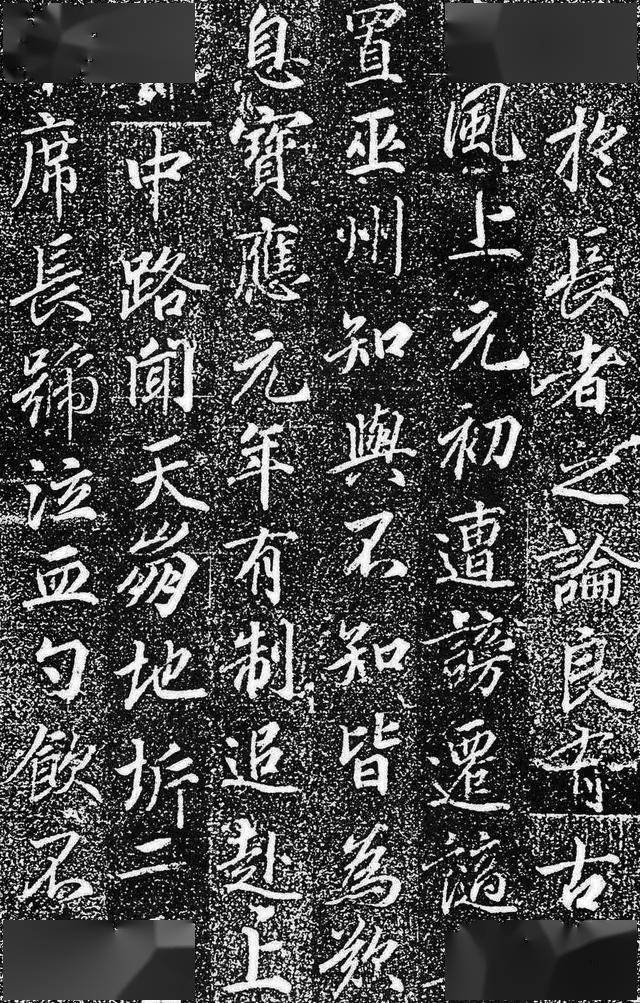 於長者之論良有古
風上元初遭謗遷謫
置巫州知與不知皆為歎
息寶應元年有制追赴上
中路聞天崩地坼二
席長號泣血勺飲不